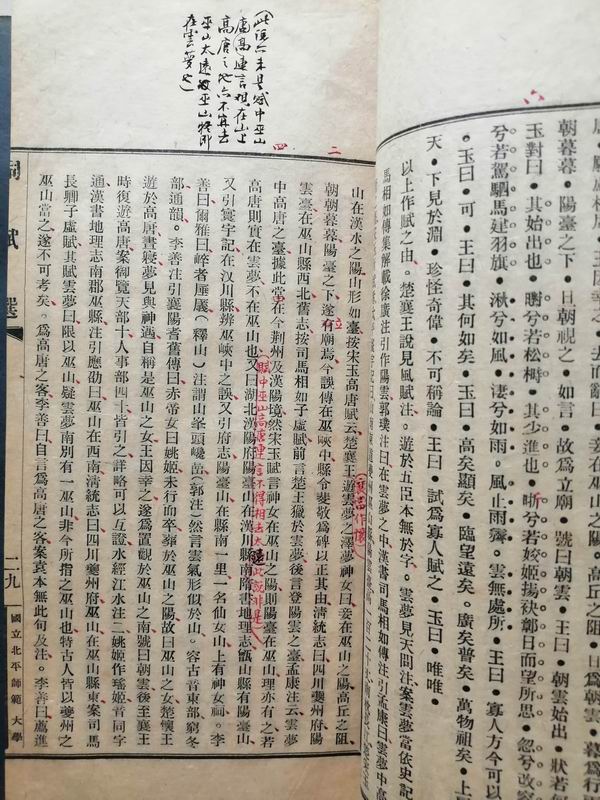 去而辭曰•妾在巫山之陽•高丘之阻•旦爲朝雲•暮爲行
朝暮暮•陽臺之下•旦朝視之•如言•故爲立廟•號曰朝雲•王曰•朝雲始出•狀若
玉對曰•其始出也•㬣兮若松榯•其少進也•晰兮若姣姬揚袂鄣日而望所思•忽兮改容
兮若駕駟馬建羽旗•湫兮如風•淒兮如雨•風止雨霽•雲無處所•王曰•寡人方今可以
•玉曰•可•王曰•其何如矣•玉曰•高矣顯矣•臨望遠矣•廣矣普矣•萬物祖矣•上
天•下見於淵•珍怪奇偉•不可稱論•王曰•試爲寡人賦之•玉曰•唯唯•
以上作賦之由。楚襄王說見風賦注。遊於五臣本無於字。雲夢見天問注案雲夢當依史記
馬相如傳集解載徐廣注引作陽雲郭璞注曰在雲夢之中漢書司馬相如傳注引孟康曰雲夢中高
六
(此說亦未是賦中巫山
高唐連言相在山上
高唐之地亦不再去
巫山太遠故巫山將即
在雲夢也)
二
四
山在漢水之陽山形如臺按宋玉高唐賦云楚襄王遊雲夢之澤夢神女曰妾在巫山之陽高丘之阻
朝朝暮暮陽臺之下遂有廟焉今誤傳在巫峽中縣令斐敬爲碑以正其由清統志曰四川夔州府陽
雲臺在巫山縣西北舊志按司馬相如子虛賦前言楚王獵於雲夢後言登陽雲之臺孟康注云雲夢
中高唐之臺據此當在今荆州及漢陽境然宋玉賦言神女在巫山之陽則陽臺在巫山理亦有之若
高唐則實在雲夢不在巫山也又曰湖北漢陽府陽臺山在漢川縣南隋書地理志甑山縣有陽臺山
又引寰宇記在汉川縣辨巫峽中之誤又引府志陽臺山在縣南一里一名仙女山上有神女祠。李
善曰爾雅曰崒者厜㕒(釋山)注謂山峯頭巉嵒(郭注)然言雲氣形似於山。容古音東部窮冬
部通韻。李善注引襄陽耆舊傳曰赤帝女曰姚姬未行而卒葬於巫山之陽故曰巫山之女楚懷王
遊於高唐晝寢夢見與神遇自稱是巫山之女王因幸之遂爲置觀於巫山之南號曰朝雲後至襄王
時復遊高唐案御覽天部十人事部四十皆引之詳略可以互證水經江水注二姚姬作瑤姬音同字
通漢書地理志南郡巫縣注引應劭曰巫山在西南清統志曰四川夔州府巫山在巫山縣東案司馬
長卿子虛賦其賦雲夢曰限以巫山疑雲夢南別有一巫山非今所指之巫山也特古人皆以夔州之
巫山當之遂不可考矣。爲高唐之客李善曰自言爲高唐之客案袁本無此句及注。李善曰薦進
賦中巫山高唐連言不得相去太遠此說非是
詞賦選
二九
國立北平師範大學